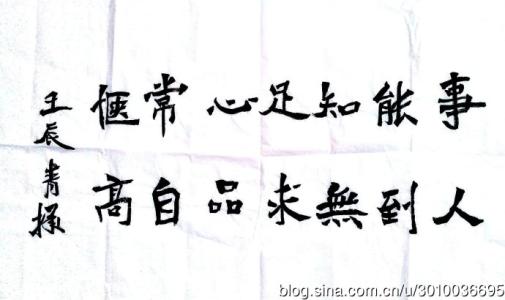 事能知足心常愜
人到無求品自高
壬辰青
blog.sina.com.cn/u/3010036695